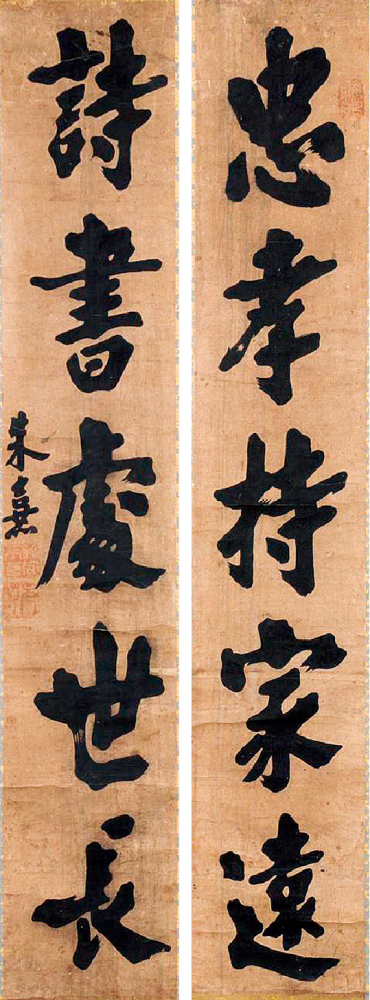 忠孝持家遠
詩書處世長
朱熹